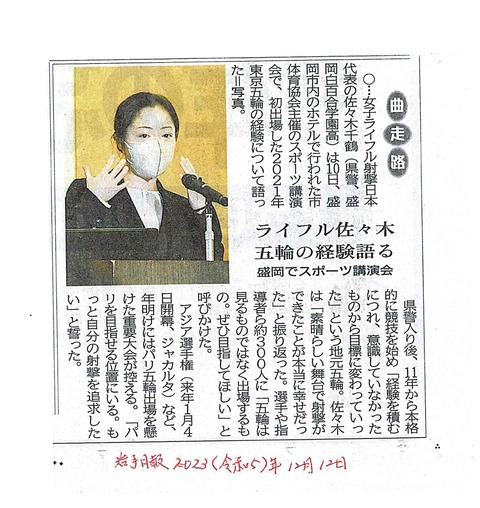 曲走路
ライフル佐々木
五輪の経験語る
盛岡でスポーツ講演会
○…女子ライフル射撃日本
代表の佐々木千鶴（県警、盛
岡白百合学園高）は10日、盛
岡市内のホテルで行われた市
体育協会主催のスポーツ講演
会で、初出場した2021年
東京五輪の経験について語っ
た＝写真。
県警入り後、11年から本格
的に競技を始め「経験を積む
につれ、意識していなかった
ものから目標に変わっていっ
た」という地元五輪。佐々木
は「素晴らしい舞台で射撃が
できたことが本当に幸せだっ
た」と振り返った。選手や指
導者ら約300人に「五輪は
見るものではなく出場するも
の。ぜひ目指してほしい」と
呼びかけた。
アジア選手権（来年1月4
日開幕、ジャカルタ）など、
年明けにはパリ五輪出場を懸
けた重要大会が控える。「パ
リを目指せる位置にいる。も
っと自分の射撃を追求した
い」と誓った。
岩手日報 2023(令和5)年12月12日